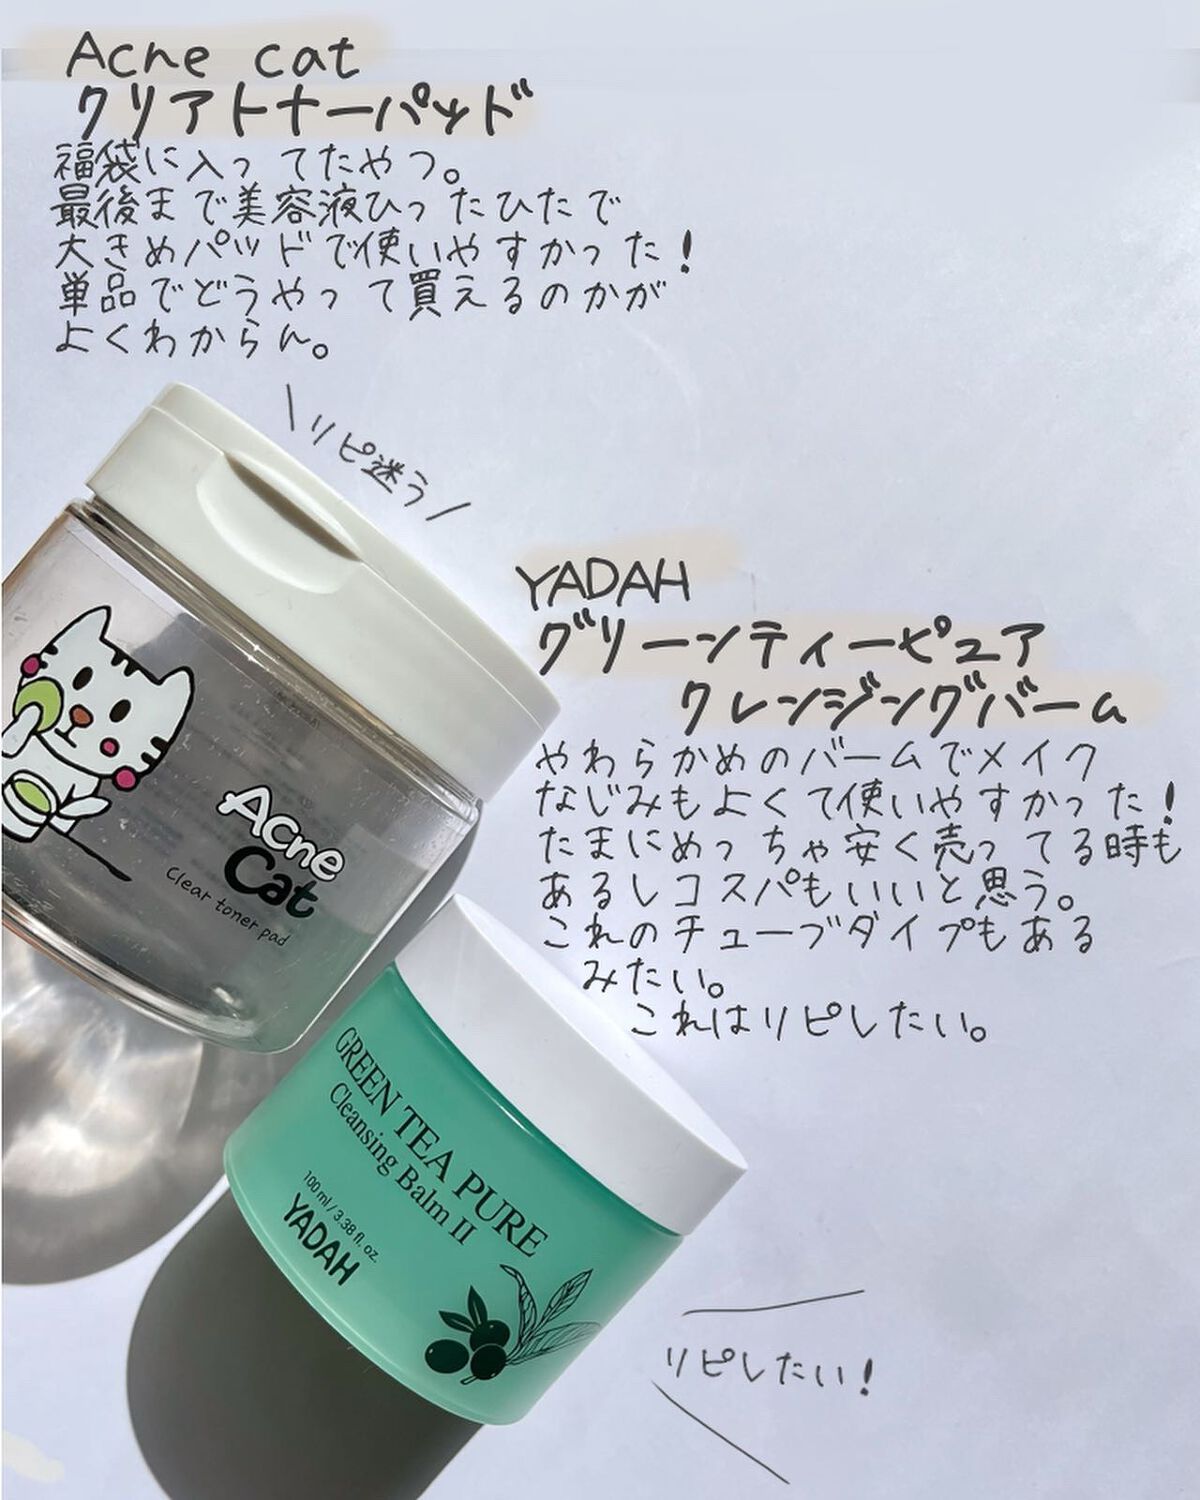 Acne cat
クリアトナーパッド
福袋に入ってたやつ。
最後まで美容液ひったひたで
大きめパッドで使いやすかった!
単品でどうやって買えるのかが
よくわからん。
\リピ迷う/
YADAH
グリーンティーピュア
クレンジングバーム
やわらかめのバームでメイク
なじみもよくて使いやすかった!
たまにめっちゃ安く売ってる時も
あるしコスパもいいと思う。
これのチューブタイプもある
みたい。
これはリピしたい。
Acne
Cat
Clear toner pad
GREEN TEA PURE
Cleansing Balm II
100 ml / 3.38 fl. oz.
YADAH
リピしたい!